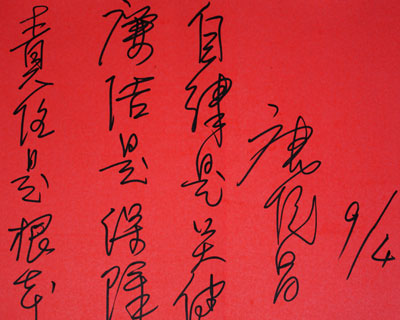 責任是根本
廉洁是保障
自律是关健
9/4